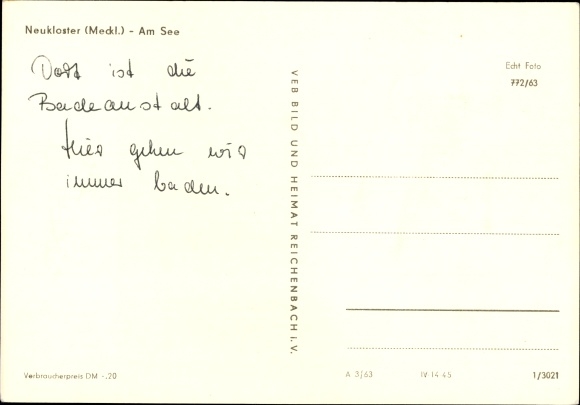 Neukloster (Meckl.) - Am See
Dort ist die
Badeanstalt.
Hier gehen wir
immer baden.
VEB BILD UND HEIMAT REICHENBACH I. V.
Echt Foto
772/63
Verbraucherpreis DM -.20
A 3/63 IV-14-45 1/3021